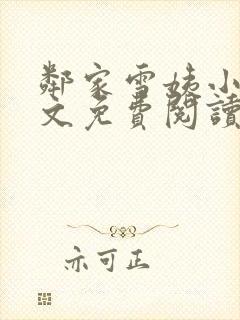 鄰家雪姨小
文免費閱讀
亦可正